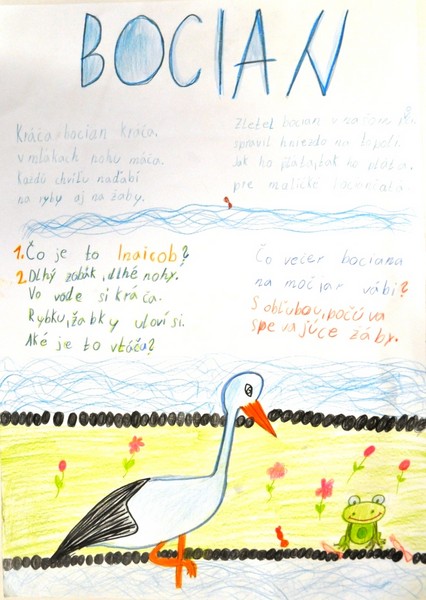 BOCIAN
Kráča bocian kráča.
v mlákach nohu máča.
Každú chvíľu naďabí
na ryby aj na žaby.
Zletel bocian v našom
spravil hniezdo na topoli.
Jak ho pláta, tak ho pláta.
pre maličké bocianiatá.
1. Čo je to Inaicob?
2. Dlhý zobák, dlhé nohy.
Vo vode si kráča.
Rybku, žabky uloví si.
Aké je to vtáča?
Čo večer bociana
na močiar vábi?
S obľubou, počúva
spevajúce žáby.